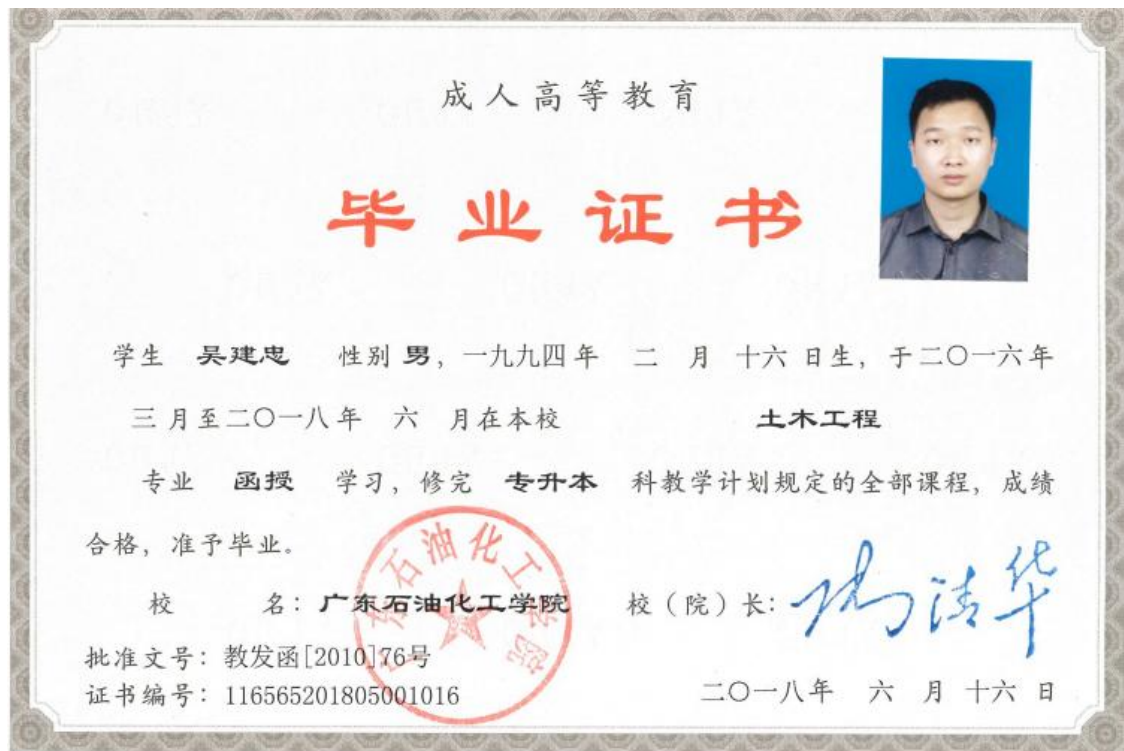 成人高等教育
毕业证书
学生 吴建忠 性别 男，一九九四年 二 月 十六 日生，于二〇一六年
三 月至二〇一八年 六 月在本校 土木工程
专业 函授 学习，修完 专升本 科教学计划规定的全部课程，成绩
合格，准予毕业。
校 名：广东石油化工学院 校（院）长：
广东石油化工学院
批准文号：教发函[2010]76号
证书编号：116565201805001016 二〇一八年 六 月 十六 日